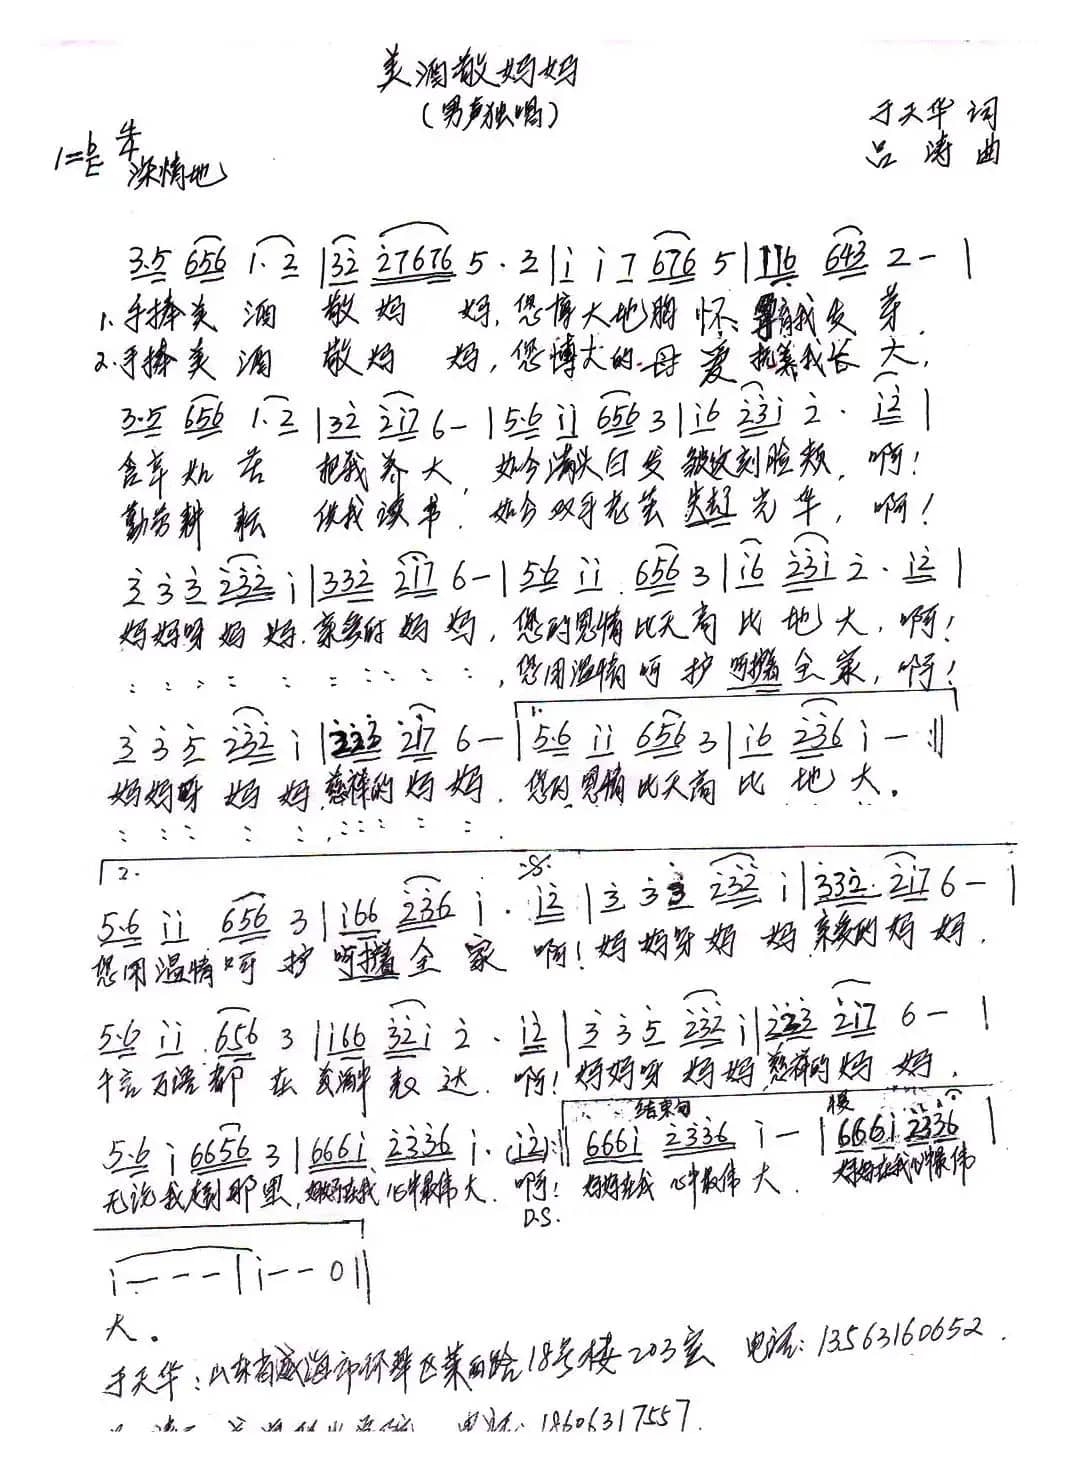 美酒敬妈妈
(男声独唱)
于天华 词
吕涛 曲
1=bE 4/4
深情地
3·5 656 1·2 | 32 27676 5·3 | i i 7 676 5 | 116 643 2 - |
1.手捧美酒 敬妈妈,您博大地胸怀,育我发芽.
2.手捧美酒 敬妈妈,您博大的母爱 抚养我长大,
3·5 656 1·2 | 32 217 6 - | 5·6 ii 656 3 | i6 23i 2· i2 |
含辛如苦 把我养大,如今满头白发 皱纹刻脸颊,啊!
勤劳耕耘 供我读书.如今双手老茧 失去了光华,啊!
3 3 3 232 i | 332 217 6 - | 56 ii 656 3 | i6 23i 2· i2 |
妈妈呀妈妈.亲爱的妈妈,您的恩情比天高比地大,啊!
: : : : : : : : : : : ,您用温情呵护呵护着全家,啊!
3 3 5 232 i | 333 217 6 - | 1. 5·6 ii 656 3 | i6 236 i - :||
妈妈呀妈妈,慈祥的妈妈.您的恩情比天高比地大。
: : : : : , : : : : : .
2.
5·6 ii 656 3 | i66 236 i· i2 | 3 3 3 232 i | 332 217 6 - |
您用温情呵护呵护着全家 啊!妈妈呀妈妈 亲爱的妈妈.
5·6 ii 656 3 | i66 32i 2· i2 | 3 3 5 232 i | 223 217 6 - |
千言万语都在美酒中表达.啊!妈妈呀妈妈,慈祥的妈妈.
结束句 慢
5·6 i 6656 3 | 666i 2336 i· (i2) :|| 666i 2336 i - | 666i 2336 |
无论我走到那里,妈妈在我心中最伟大.啊! 妈妈在我心中最伟大.妈妈在我心中最伟
D.S.
i - - - | i - - 0 ||
大。
于天华:山东省威海市环翠区莱西路18号楼203室 电话:13563160652.
电话:18606317557.